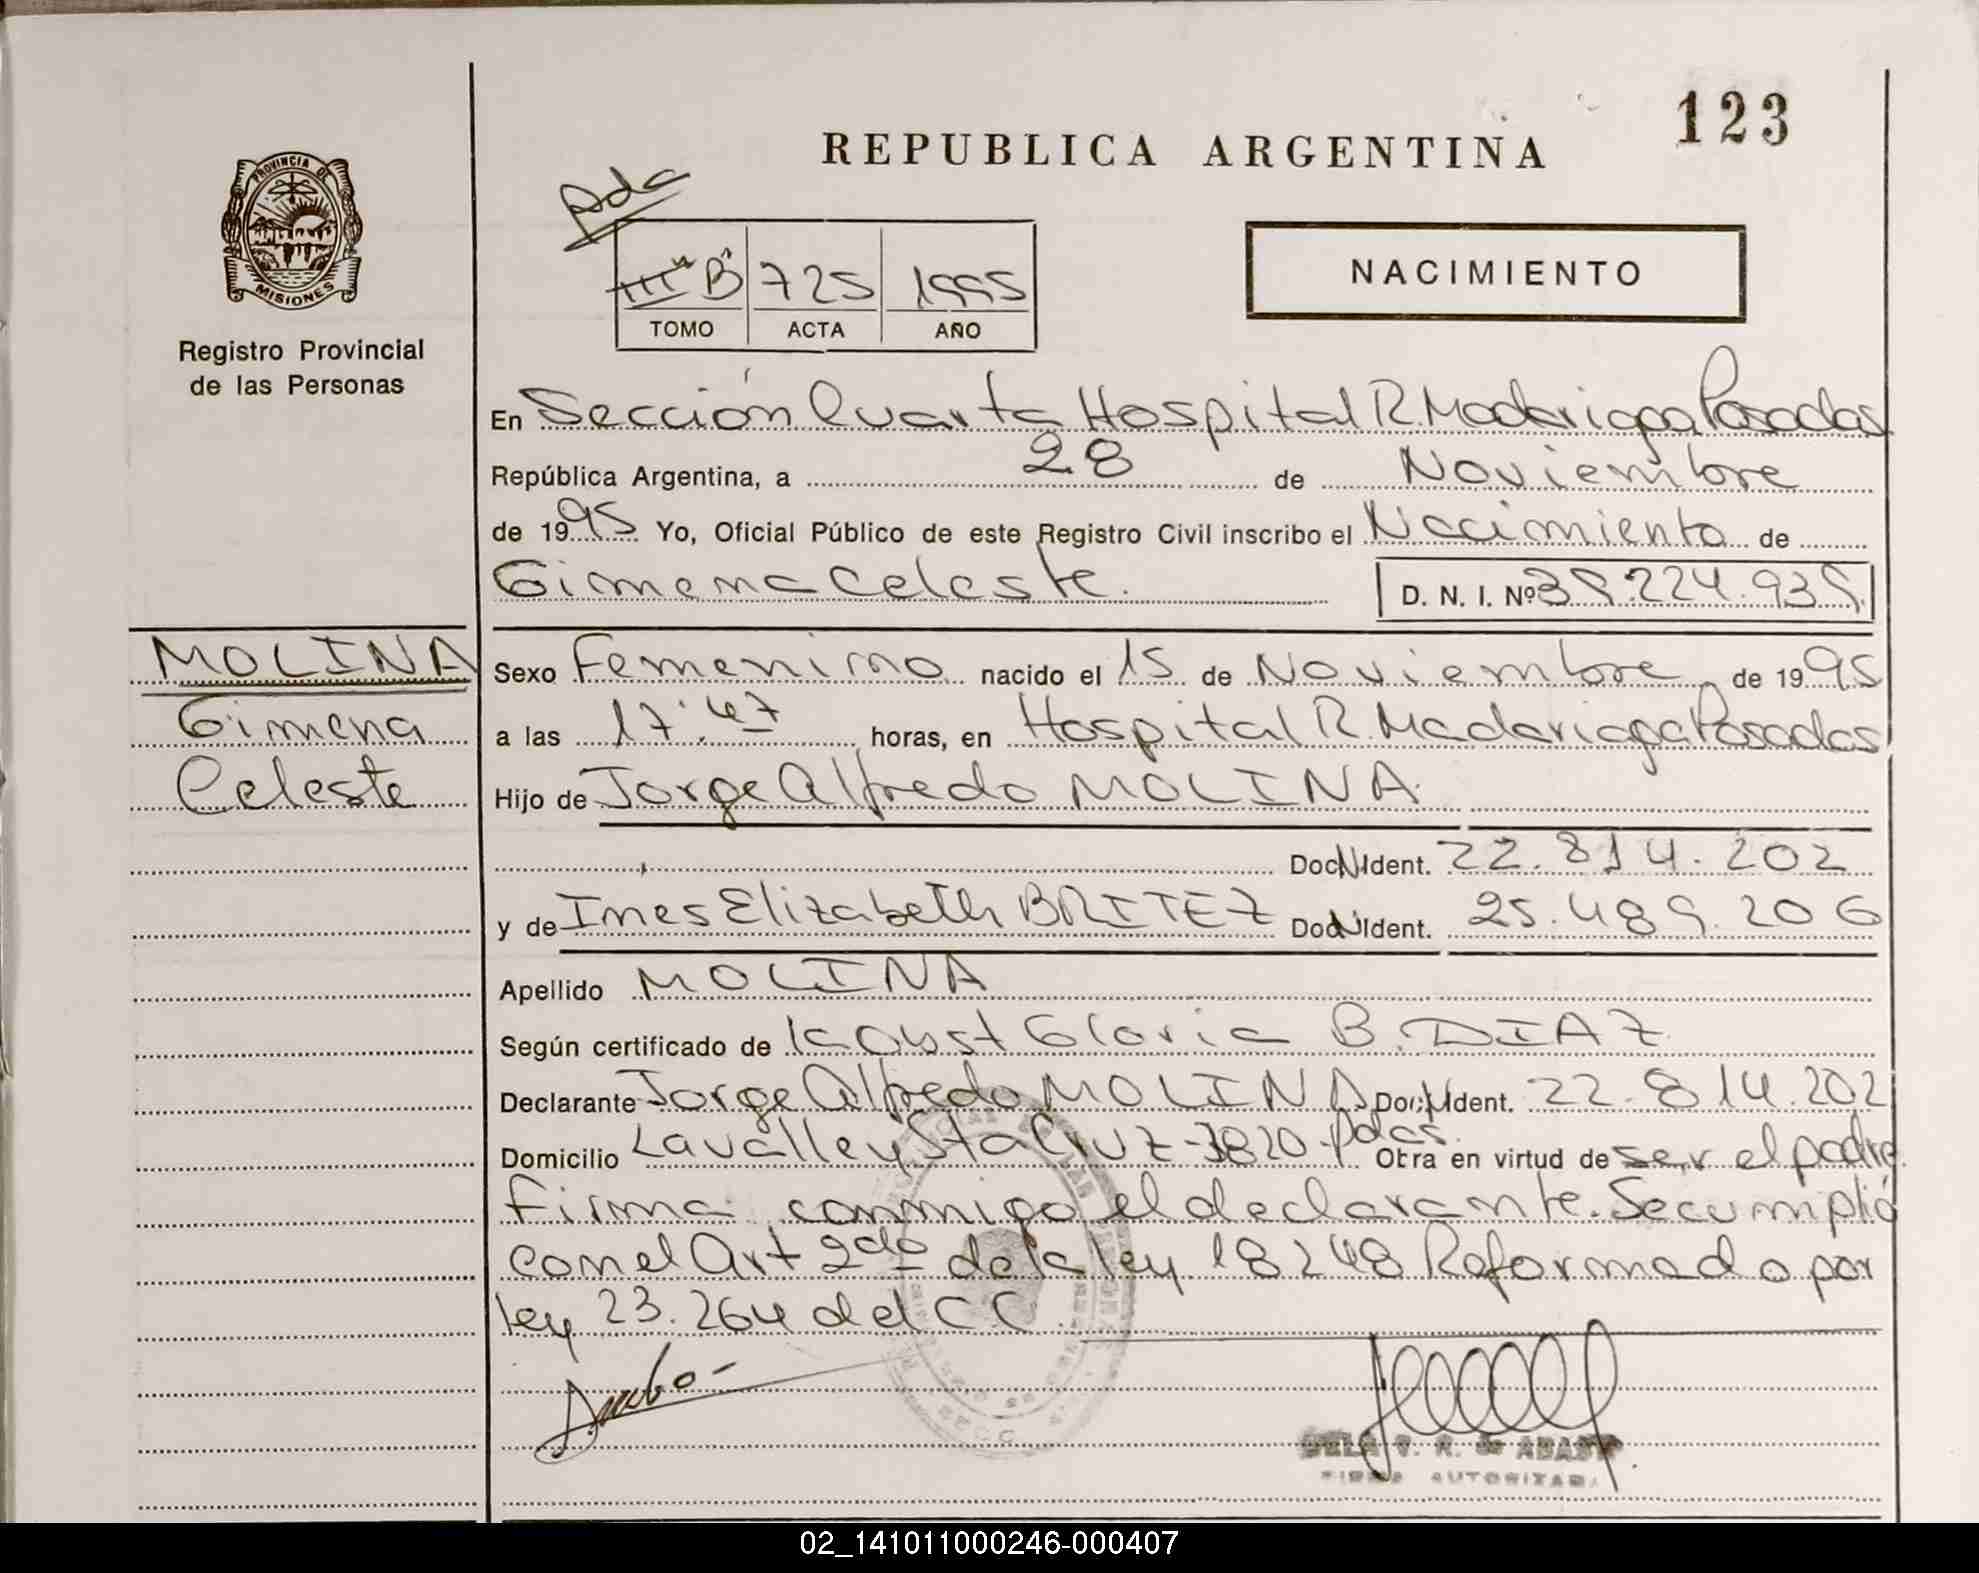 123
REPUBLICA ARGENTINA
PROVINCIA DE
MISIONES
Registro Provincial
de las Personas
Ada
IIIº Bº 725 1995
TOMO ACTA AÑO
NACIMIENTO
En Sección Cuarta Hospital R. Madariaga Posadas
República Argentina, a 28 de Noviembre
de 1995 Yo, Oficial Público de este Registro Civil inscribo el Nacimiento de
Gimena Celeste. D. N. I. Nº 39.224.939.
MOLINA
Gimena
Celeste
Sexo Femenino nacido el 15 de Noviembre de 1995
a las 17:47 horas, en Hospital R. Madariaga Posadas
Hijo de Jorge Alfredo MOLINA
Doc. Ident. 22.814.202
y de Ines Elizabeth BRITEZ Doc. Ident. 25.489.206
Apellido MOLINA
Según certificado de la Obst Gloria B. DIAZ
Declarante Jorge Alfredo MOLINA Doc. Ident. 22.814.202
Domicilio Lavalle y Sta Cruz - 3820 - Pdas. Otra en virtud de ser el padre
Firma conmigo el declarante. Se cumplió
con el Art 2do de la ley 18248 Reformado por
ley 23.264 del CC
R. de ABAS
FIRMA AUTORIZADA
02_141011000246-000407